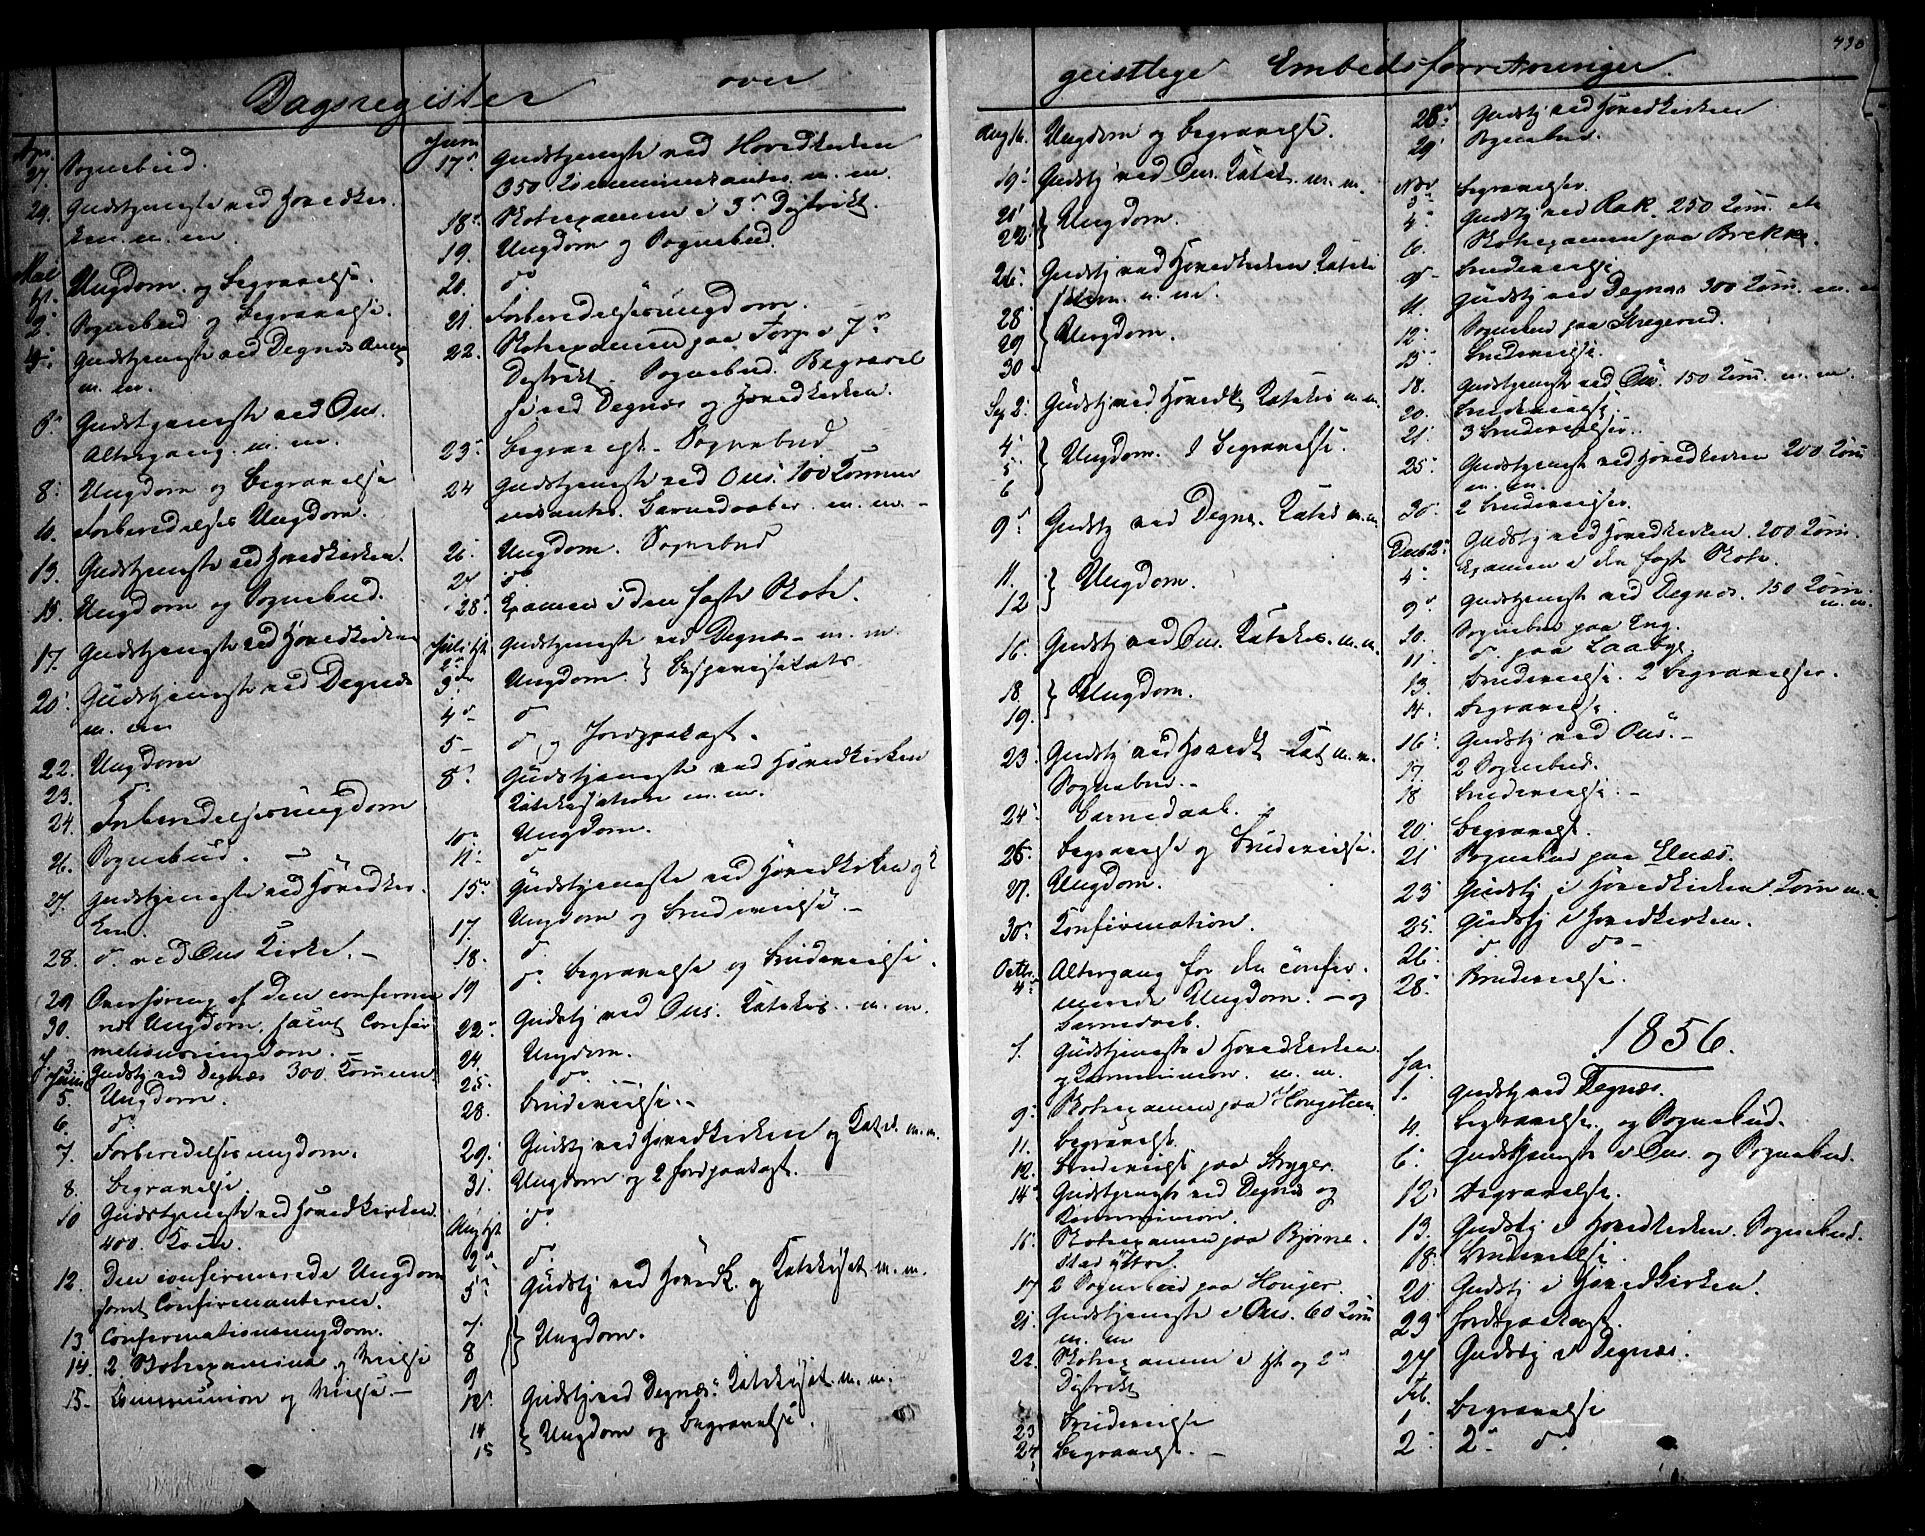 Dagsregister over geistlige Embedsforretninger.
430
Apr.
27. Sognebud.
29. Gudstjeneste ved Hovedkir-
ken. m. m.
Mai
1st. Ungdom og Begravelse.
2. Sognebud og Begravelse.
4. Gudstjeneste ved Degnæs
m. m.
6. Gudstjeneste ved Ous.
Altergang. m. m.
8. Ungdom og Begravelse
10. Forberedelses Ungdom.
13. Gudstjeneste ved Hovedkirken.
15. Ungdom og Sognebud.
17. Gudstjeneste ved Hovedkirken
20. Gudstjeneste ved Degnæs
m. m
22. Ungdom
23. do
24. Forberedelsesungdom
26. Sognebud.
27. Gudstjeneste ved Hovedkir-
ken.
28. do ved Ous Kirke. -
29 Overhøring af den confirme-
30. rede Ungdom, samt Confir-
mationsungdom. -
Juni 3. Gudstj ved Degnæs 300. Commun
5. Ungdom.
6. do
7. Forberedelsesungdom.
8. Begravelse
10 Gudstjeneste ved Hovedkirken.
400. Com.
12. Den confirmerede Ungdom
samt Confirmanterne.
13. Confirmationsungdom.
14. 2 Skoleexamina og Vielse
15 - Communion og Vielse -
Juni
17. Gudstjeneste ved Hovedkirken
350 Communicanter m. m.
18. Skoleexamen i 3. Distrikt.
19. Ungdom og Sognebud.
20. do
21. Forberedelsesungdom.
22. Skoleexamen paa Torp i 7de
Distrikt. Sognebud. Begravel-
se ved Degnæs og Hovedkirken.
23. Begravelse - Sognebud
24 Gudstjeneste ved Ous. 100 Commu-
nicanter. Barnedaaber. m. m. -
26. Ungdom. Sognebud
27 do
28. Examen i den faste Skole.
Juli 1st Gudstjeneste ved Degnæs - m. m.
2.
3. Ungdom.
4 - do
5 - do og Jordpaakast.
8. Gudstjeneste ved Hovedkirken
Katekisation m. m.
10. Ungdom.
11. do
15. Gudstjeneste ved Hovedkirken
17. Ungdom og Brudevielse. -
18. do
19 do Begravelse og Brudevielse.
22. Gudstj ved Ous. Katekis. m. m.
24. Ungdom.
25. do
28. Brudevielse. -
29. Gudstj ved Hovedkirken og Katek. m. m.
31. Ungdom og 2 Jordpaakast.
Aug 1st do
2. do
5. Gudstj ved Hovedk. og Katekisat m. m.
7.
8 Ungdom.
9
12. Gudstj ved Degnæs. Katekisat. m. m. -
14
15 Ungdom og Begravelse.
Aug 16. Ungdom og Begravelse.
19. Gudstj ved Ous. Katek. m. m.
21.
22. Ungdom.
26. Gudstj ved Hovedkirken. Kateki-
sation. m. m.
28
29 Ungdom.
30
Sep 2. Gudstj ved Hovedk. Katekis m. m.
4
5 Ungdom. 1 Begravelse.
6
9. Gudstj ved Degnæs. Katek m. m.
11.
12 Ungdom.
16. Gudstj ved Ous. Katekis. m. m.
18
19. Ungdom.
23. Gudstj ved Hovedk Kat m. m.
Sognebud. -
24. Barnedaab.
26. Begravelse og Brudevielse.
27. Ungdom.
30. Confirmation.
Octbr.
4. Altergang for den confir-
merede Ungdom. - og
Barnedaab.
7. Gudstjeneste i Hovedkirken.
og Communion. m. m.
9. Skoleexamen paa Hougsteen
11. Begravelse.
12. Brudevielse paa Stryger.
14. Gudstjeneste ved Degnæs og
Communion.
16. Skoleexamen paa Bjørne-
stad yttre.
17 2 Sognebud paa Houger.
21. Gudstjeneste i Ous. 60 Com
m. m
22. Skoleexamen i 1st og 2
Distrikt
23 Brudevielse
24 Begravelse. -
28. Gudstj ved Hovedkirken
29 Sognebud.
Nov
3. Begravelse.
4. Gudstj ved Rak. 250 Com. etc
6. Skoleexamen paa Brekke.
9. Brudevielse
11. Gudstj ved Degnæs 300 Com. m. m
12. Sognebud paa
15 Brudevielse.
18. Gudstjeneste ved Ous. 150 Com. m. m.
20. Brudevielse.
21. 3 Brudevielser.
25. Gudstjeneste ved Hovedkirken 200 Com
m. m.
30. 2 Brudevielser.
Decb 2. Gudstj ved Hovedkirken. 200 Com.
4. Examen i den faste Skole.
9. Gudstjeneste ved Degnæs. 150 Com.
m. m.
10. Sognebud paa Eng.
11. do paa Laaby.
13. Brudevielse. 2 Begravelser.
14. Begravelse.
16. Gudstj ved Ous. -
17. 2 Sognebud.
18 Brudevielse. -
20. Begravelse.
21 Sognebud paa Elnæs.
23 Gudstj i Hovedkirken. Com m. m.
25. Gudstj i Hovedkirken.
26. do do -
28. Brudevielse.
1856.
Jan.
1. Gudstj ved Degnæs.
4. Begravelse og Sognebud.
6. Gudstjeneste i Ous. og Sognebud.
12. Begravelse.
13. Gudstj i Hovedkirken. Sognebud.
18. Brudevielse.
20 Gudstj i Hovedkirken.
23 Jordpaakast.
27 Gudstj i Degnæs.
Feb.
1 Begravelse
2. 2 - do